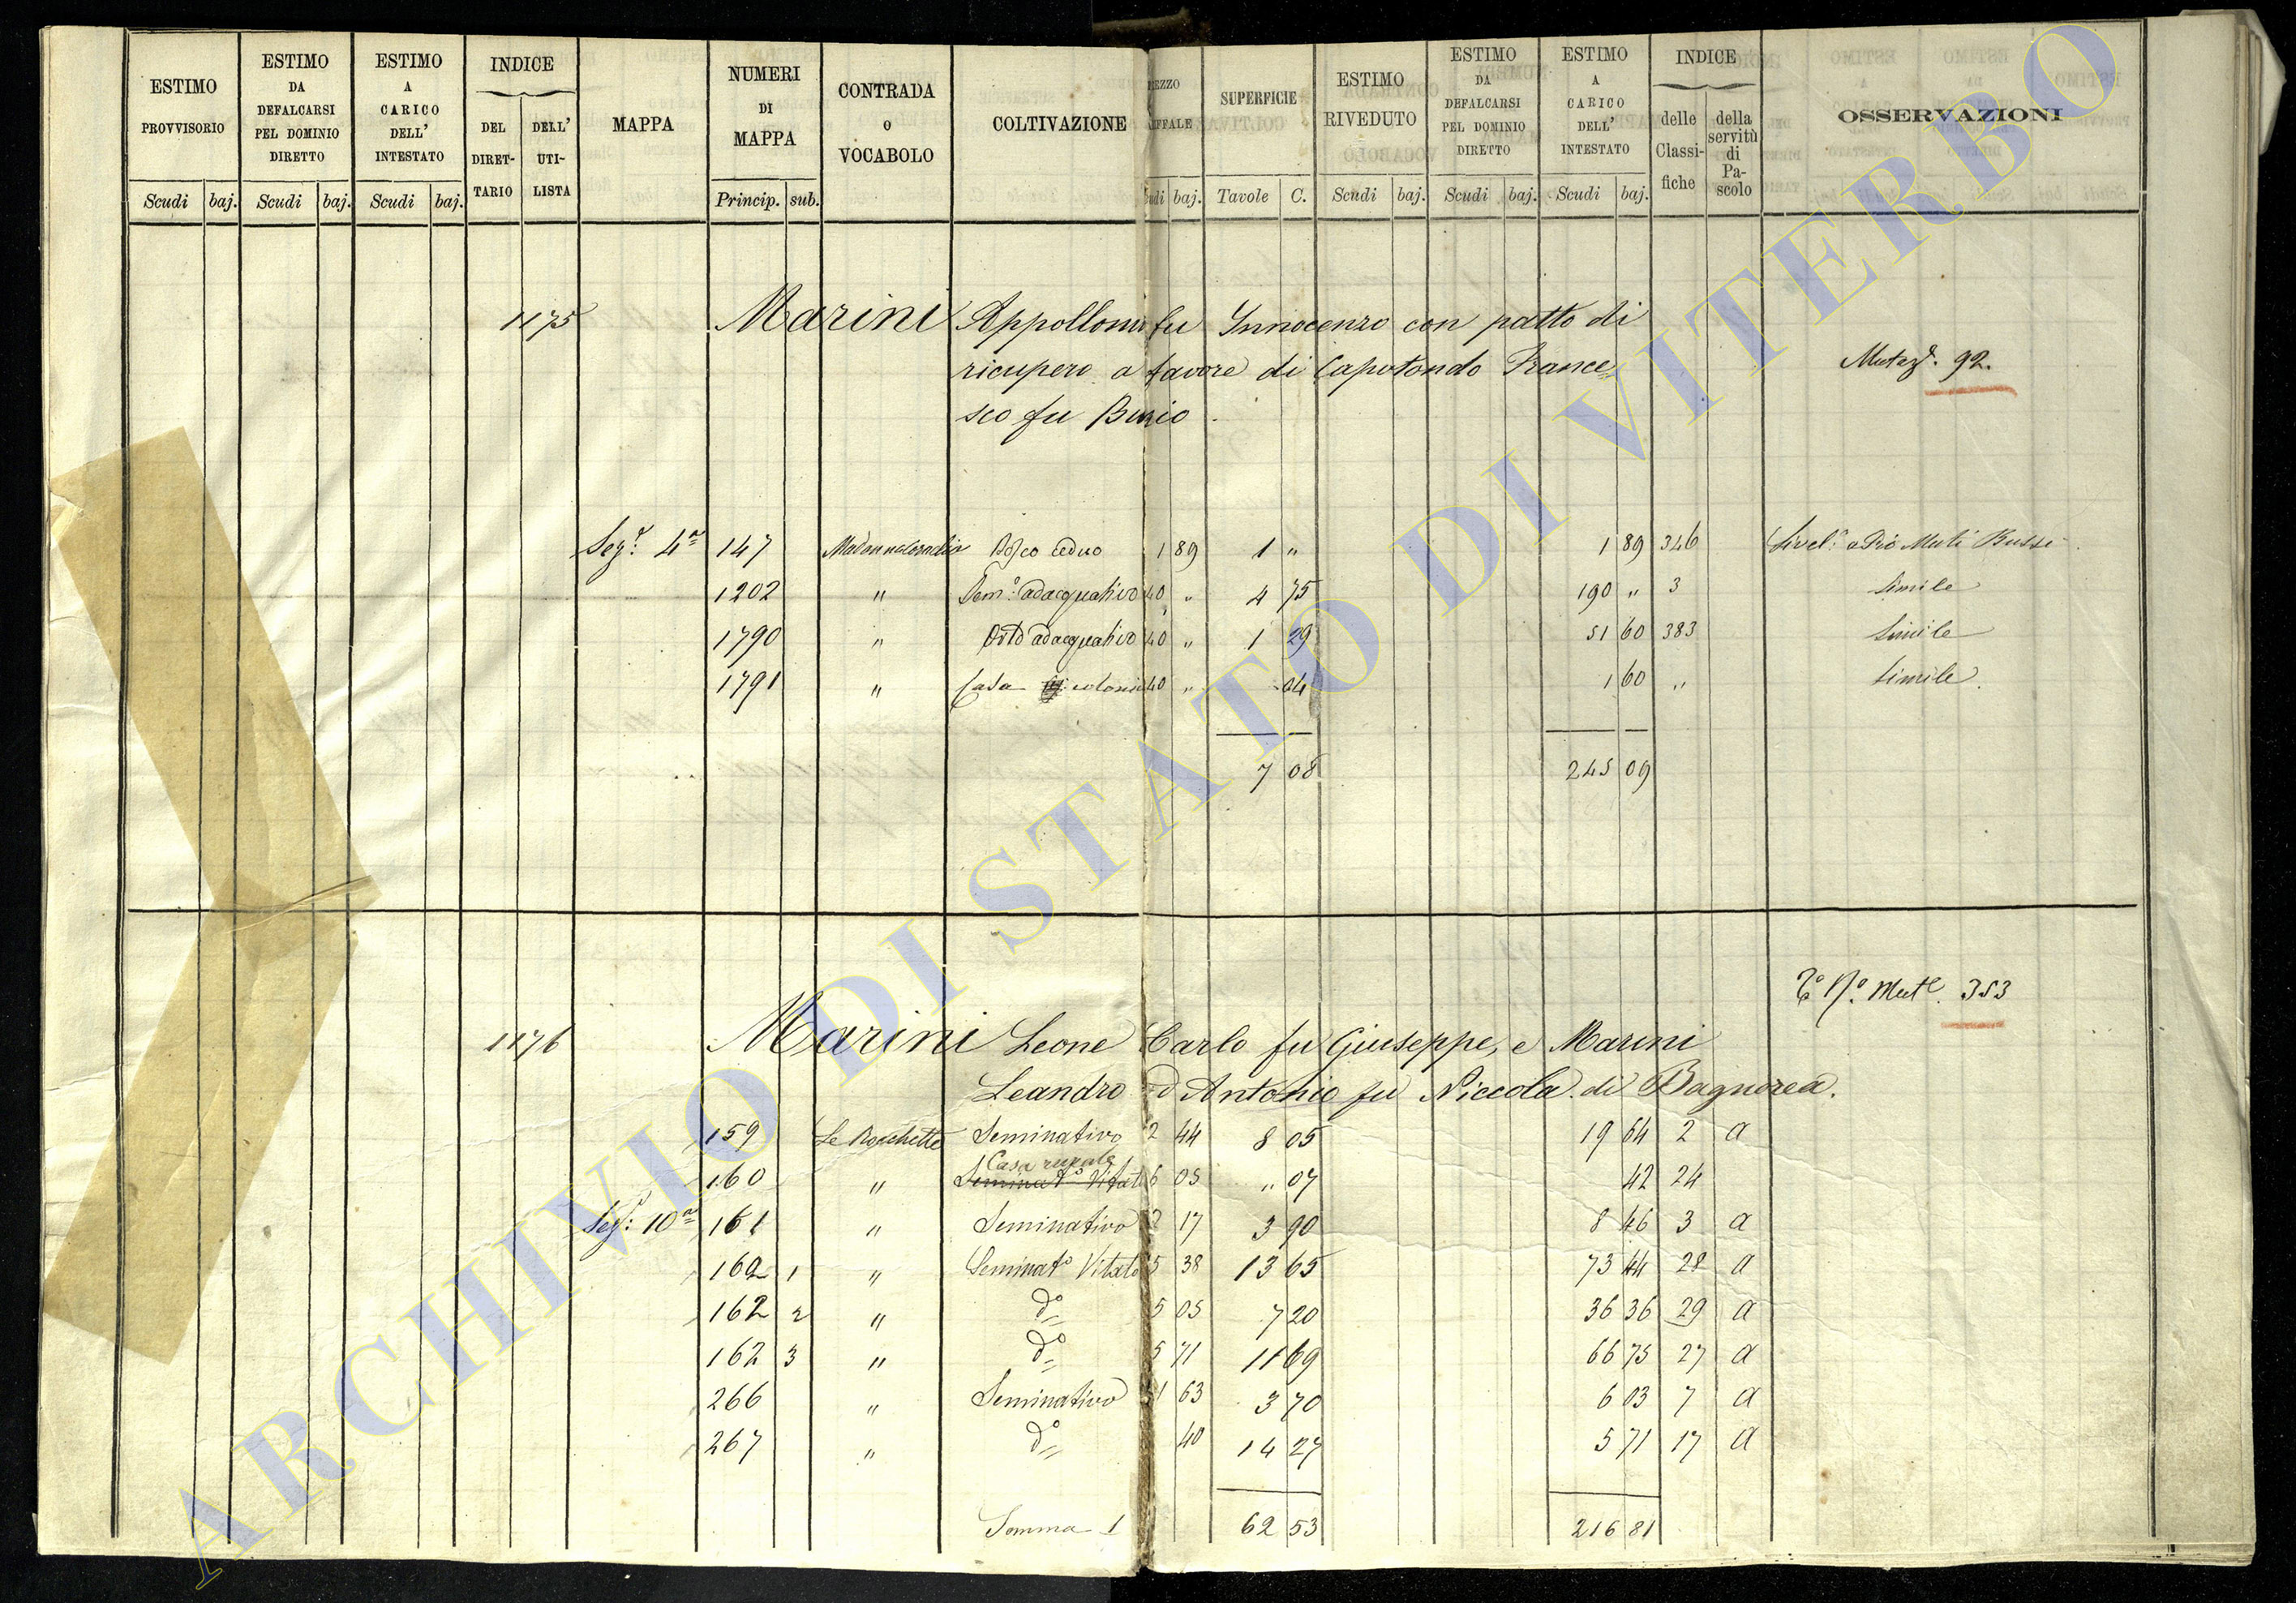 ESTIMO PROVVISORIO
ESTIMO DA DEFALCARSI PEL DOMINIO DIRETTO
ESTIMO A CARICO DELL' INTESTATO
INDICE
DEL DIRET- TARIO
DELL' UTI- LISTA
MAPPA
NUMERI DI MAPPA
CONTRADA O VOCABOLO
COLTIVAZIONE
SUPERFICIE
ESTIMO RIVEDUTO
ESTIMO DA DEFALCARSI PEL DOMINIO DIRETTO
ESTIMO A CARICO DELL' INTESTATO
INDICE
delle Classi- fiche
della servitù di Pa- scolo
OSSERVAZIONI
Scudi baj. Scudi baj. Scudi baj. Princip. sub. baj. Tavole C. Scudi baj. Scudi baj. Scudi baj.
1175 Marini Appollonio fu Innocenzo con patto di
ricupero a favore di Capotondo France
sco fu
92.
Sez. 4a 147 Bosco ceduo 1 89 1 " 1 89 346 Livel. a Pio Muti Bussi
1202 " Sem.o adacquativo 40 " 4 75 190 " 3 Simile
1790 " Orto adacquativo 40 " 1 29 51 60 383 Simile
1791 " Casa colonica 40 " 04 1 60 " Simile
7 08 245 09
353
1176 Marini Leone Carlo fu Giuseppe, e Marini
Leandro d'Antonio fu Niccola di Bagnorea.
159 Le Rocchette Seminativo 2 44 8 05 19 64 2 a
Casa rurale
160 " Seminat.o Vitato 6 05 " 07 42 24
Sez. 10a 161 " Seminativo 2 17 3 90 8 46 3 a
162 1 " Seminat.o Vitato 5 38 13 65 73 44 28 a
162 2 " d.o 5 05 7 20 36 36 29 a
162 3 " d.o 5 71 11 69 66 75 27 a
266 " Seminativo 1 63 3 70 6 03 7 a
267 " d.o 40 14 27 5 71 17 a
Somma 1 62 53 216 81
ARCHIVIO DI STATO DI VITERBO